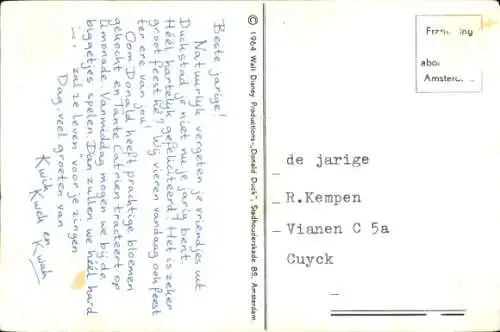 Beste jarige!
Natuurlijk vergeten je vriendjes uit
Duckstad je niet nu je jarig bent.
Héél hartelijk gefeliciteerd! Het is zeker
groot feest hè? Wij vieren vandaag ook feest
ter ere van jou.
Oom Donald heeft prachtige bloemen
gekocht en Tante Catrien tracteert op
limonade. Vanmiddag mogen we bij de
biggetjes spelen. Dan zullen we héél hard
zal ze leven" voor je zingen
Dag, veel groeten van
Kwik
Kwek en
Kwak
© 1964 Walt Disney Productions-„Donald Duck", Stadhouderskade 85, Amsterdam.
abo
Amster
de jarige
R.Kempen
Vianen C 5a
Cuyck